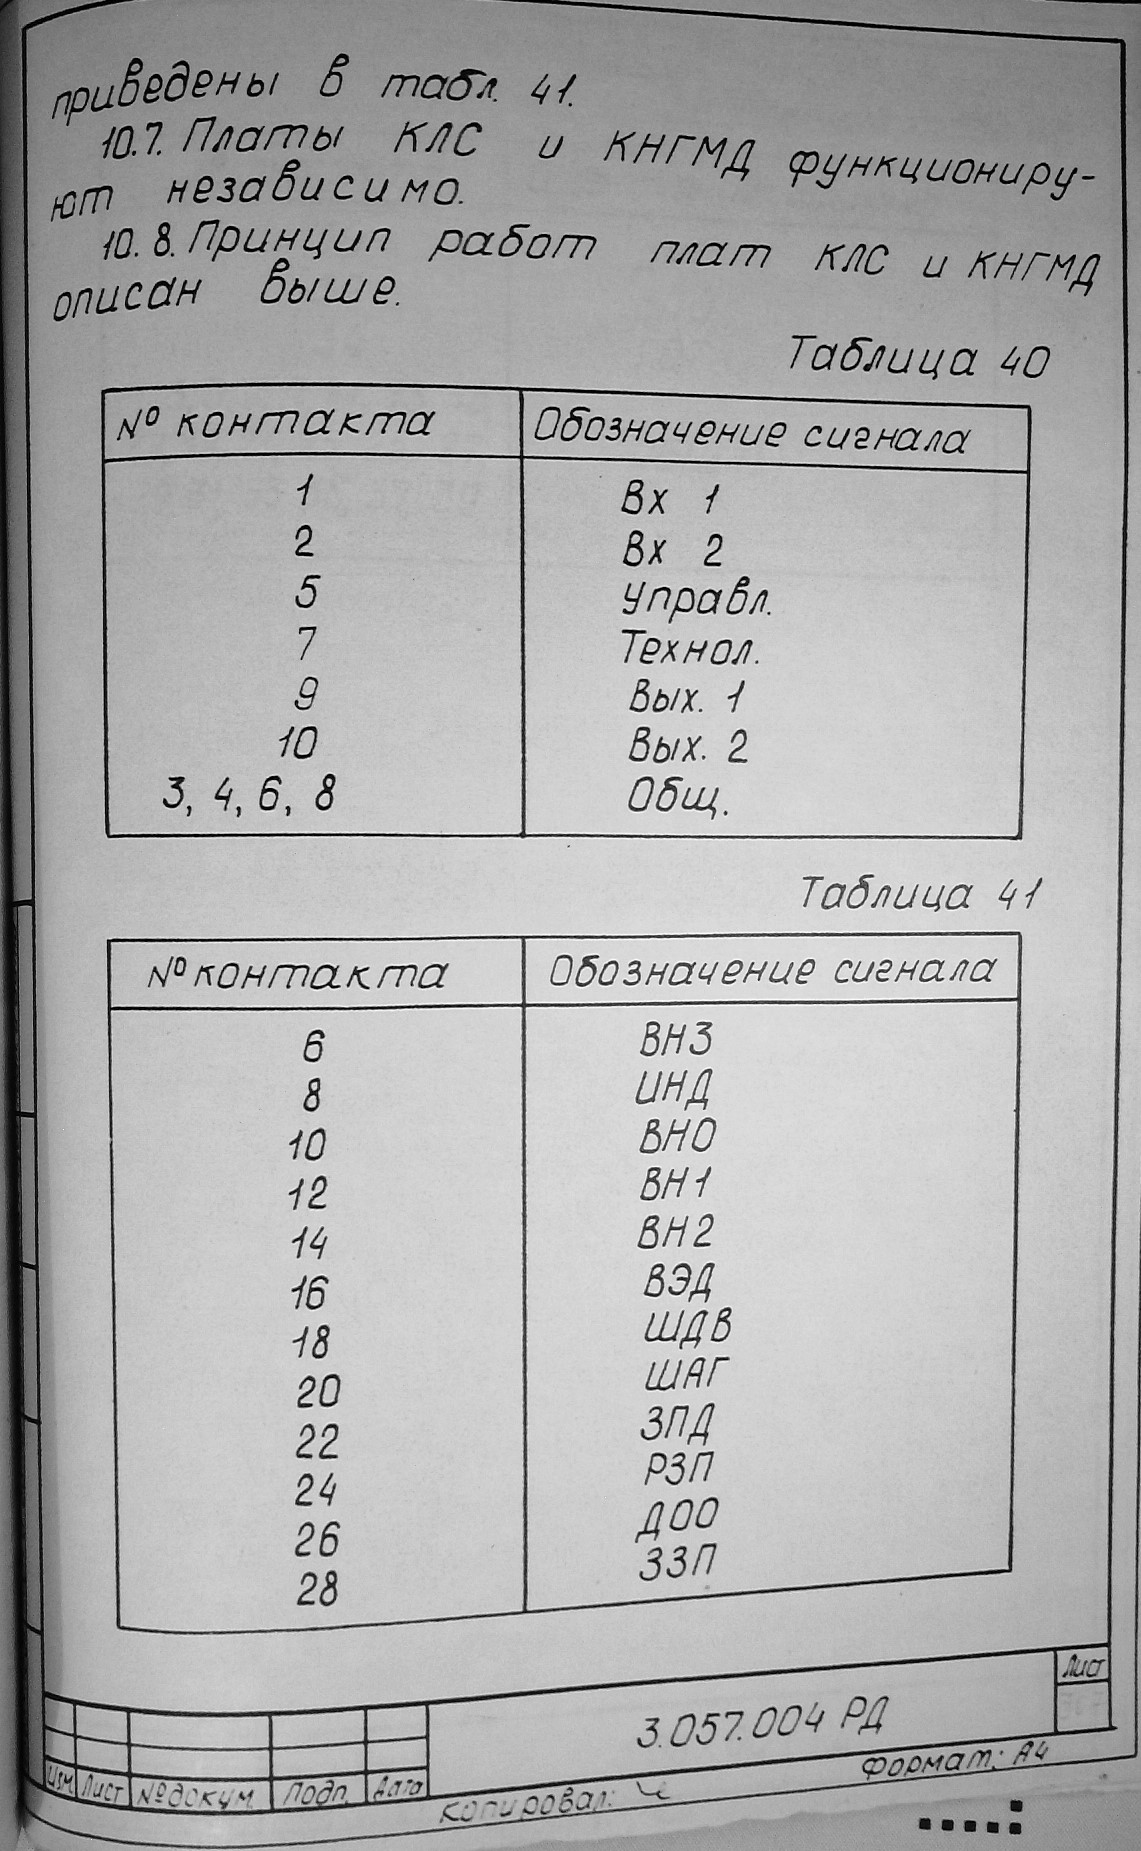 приведены в табл. 41.
10.7. Платы КЛС и КНГМД функциониру-
ют независимо.
10.8. Принцип работ плат КЛС и КНГМД
описан выше.
Таблица 40
№ контакта Обозначение сигнала
1 Вх 1
2 Вх 2
5 Управл.
7 Технол.
9 Вых. 1
10 Вых. 2
3, 4, 6, 8 Общ.
Таблица 41
№ контакта Обозначение сигнала
6 ВН3
8 ИНД
10 ВН0
12 ВН1
14 ВН2
16 ВЭД
18 ШДВ
20 ШАГ
22 ЗПД
24 РЗП
26 ДОО
28 ЗЗП
Лист
3.057.004 РД
Изм. Лист № докум. Подп. Дата
Копировал: Формат: А4